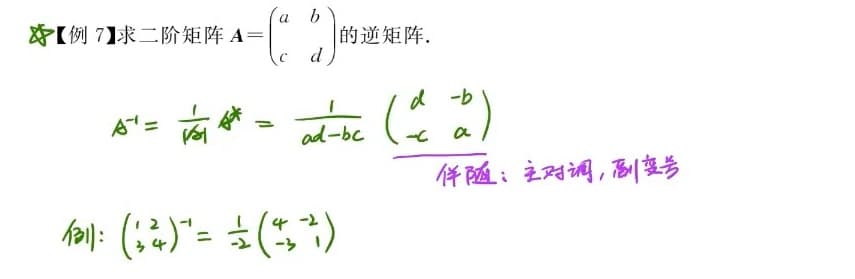 【例 7】求二阶矩阵 A=(a b; c d)的逆矩阵.
A⁻¹ = 1/|A| A* = 1/(ad-bc) (d -b; -c a)
伴随：主对调，副变号
例：(1 2; 3 4)⁻¹ = 1/-2 (4 -2; -3 1)